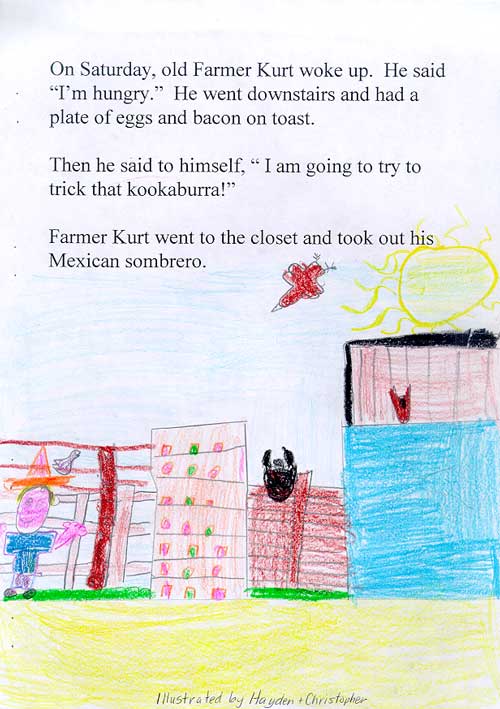 On Saturday, old Farmer Kurt woke up.  He said
“I’m hungry.”  He went downstairs and had a
plate of eggs and bacon on toast.
Then he said to himself, “ I am going to try to
trick that kookaburra!”
Farmer Kurt went to the closet and took out his
Mexican sombrero.
Illustrated by Hayden + Christopher